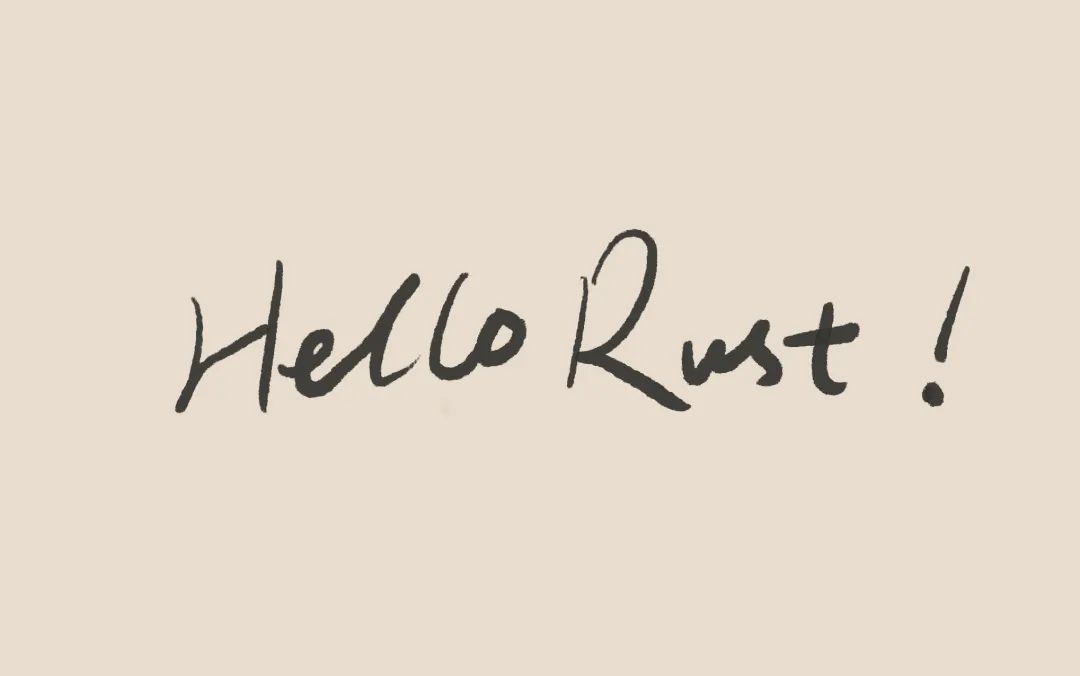 Hello Rust!